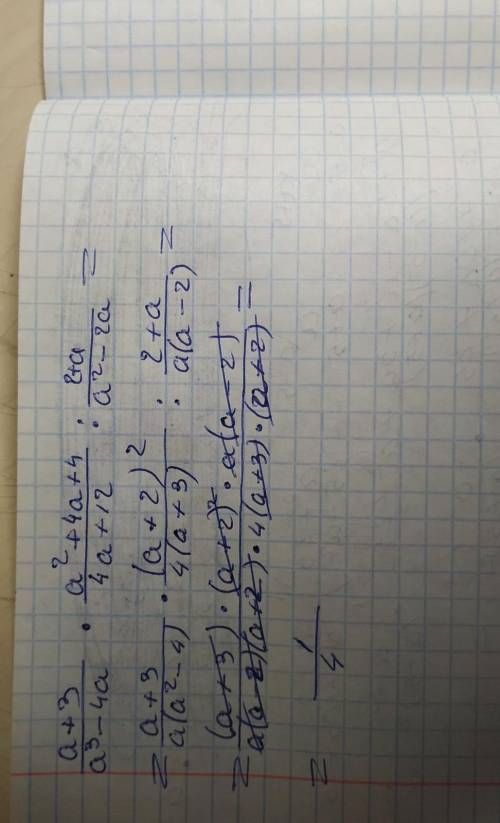 (a+3)/(a³-4a) · (a²+4a+4)/(4a+12) : (2+a)/(a²-2a) =
= (a+3)/(a(a²-4)) · (a+2)²/(4(a+3)) : (2+a)/(a(a-2)) =
= ((a+3)·(a+2)²·a(a-2))/(a(a-2)(a+2)·4(a+3)·(a+2)) =
= 1/4